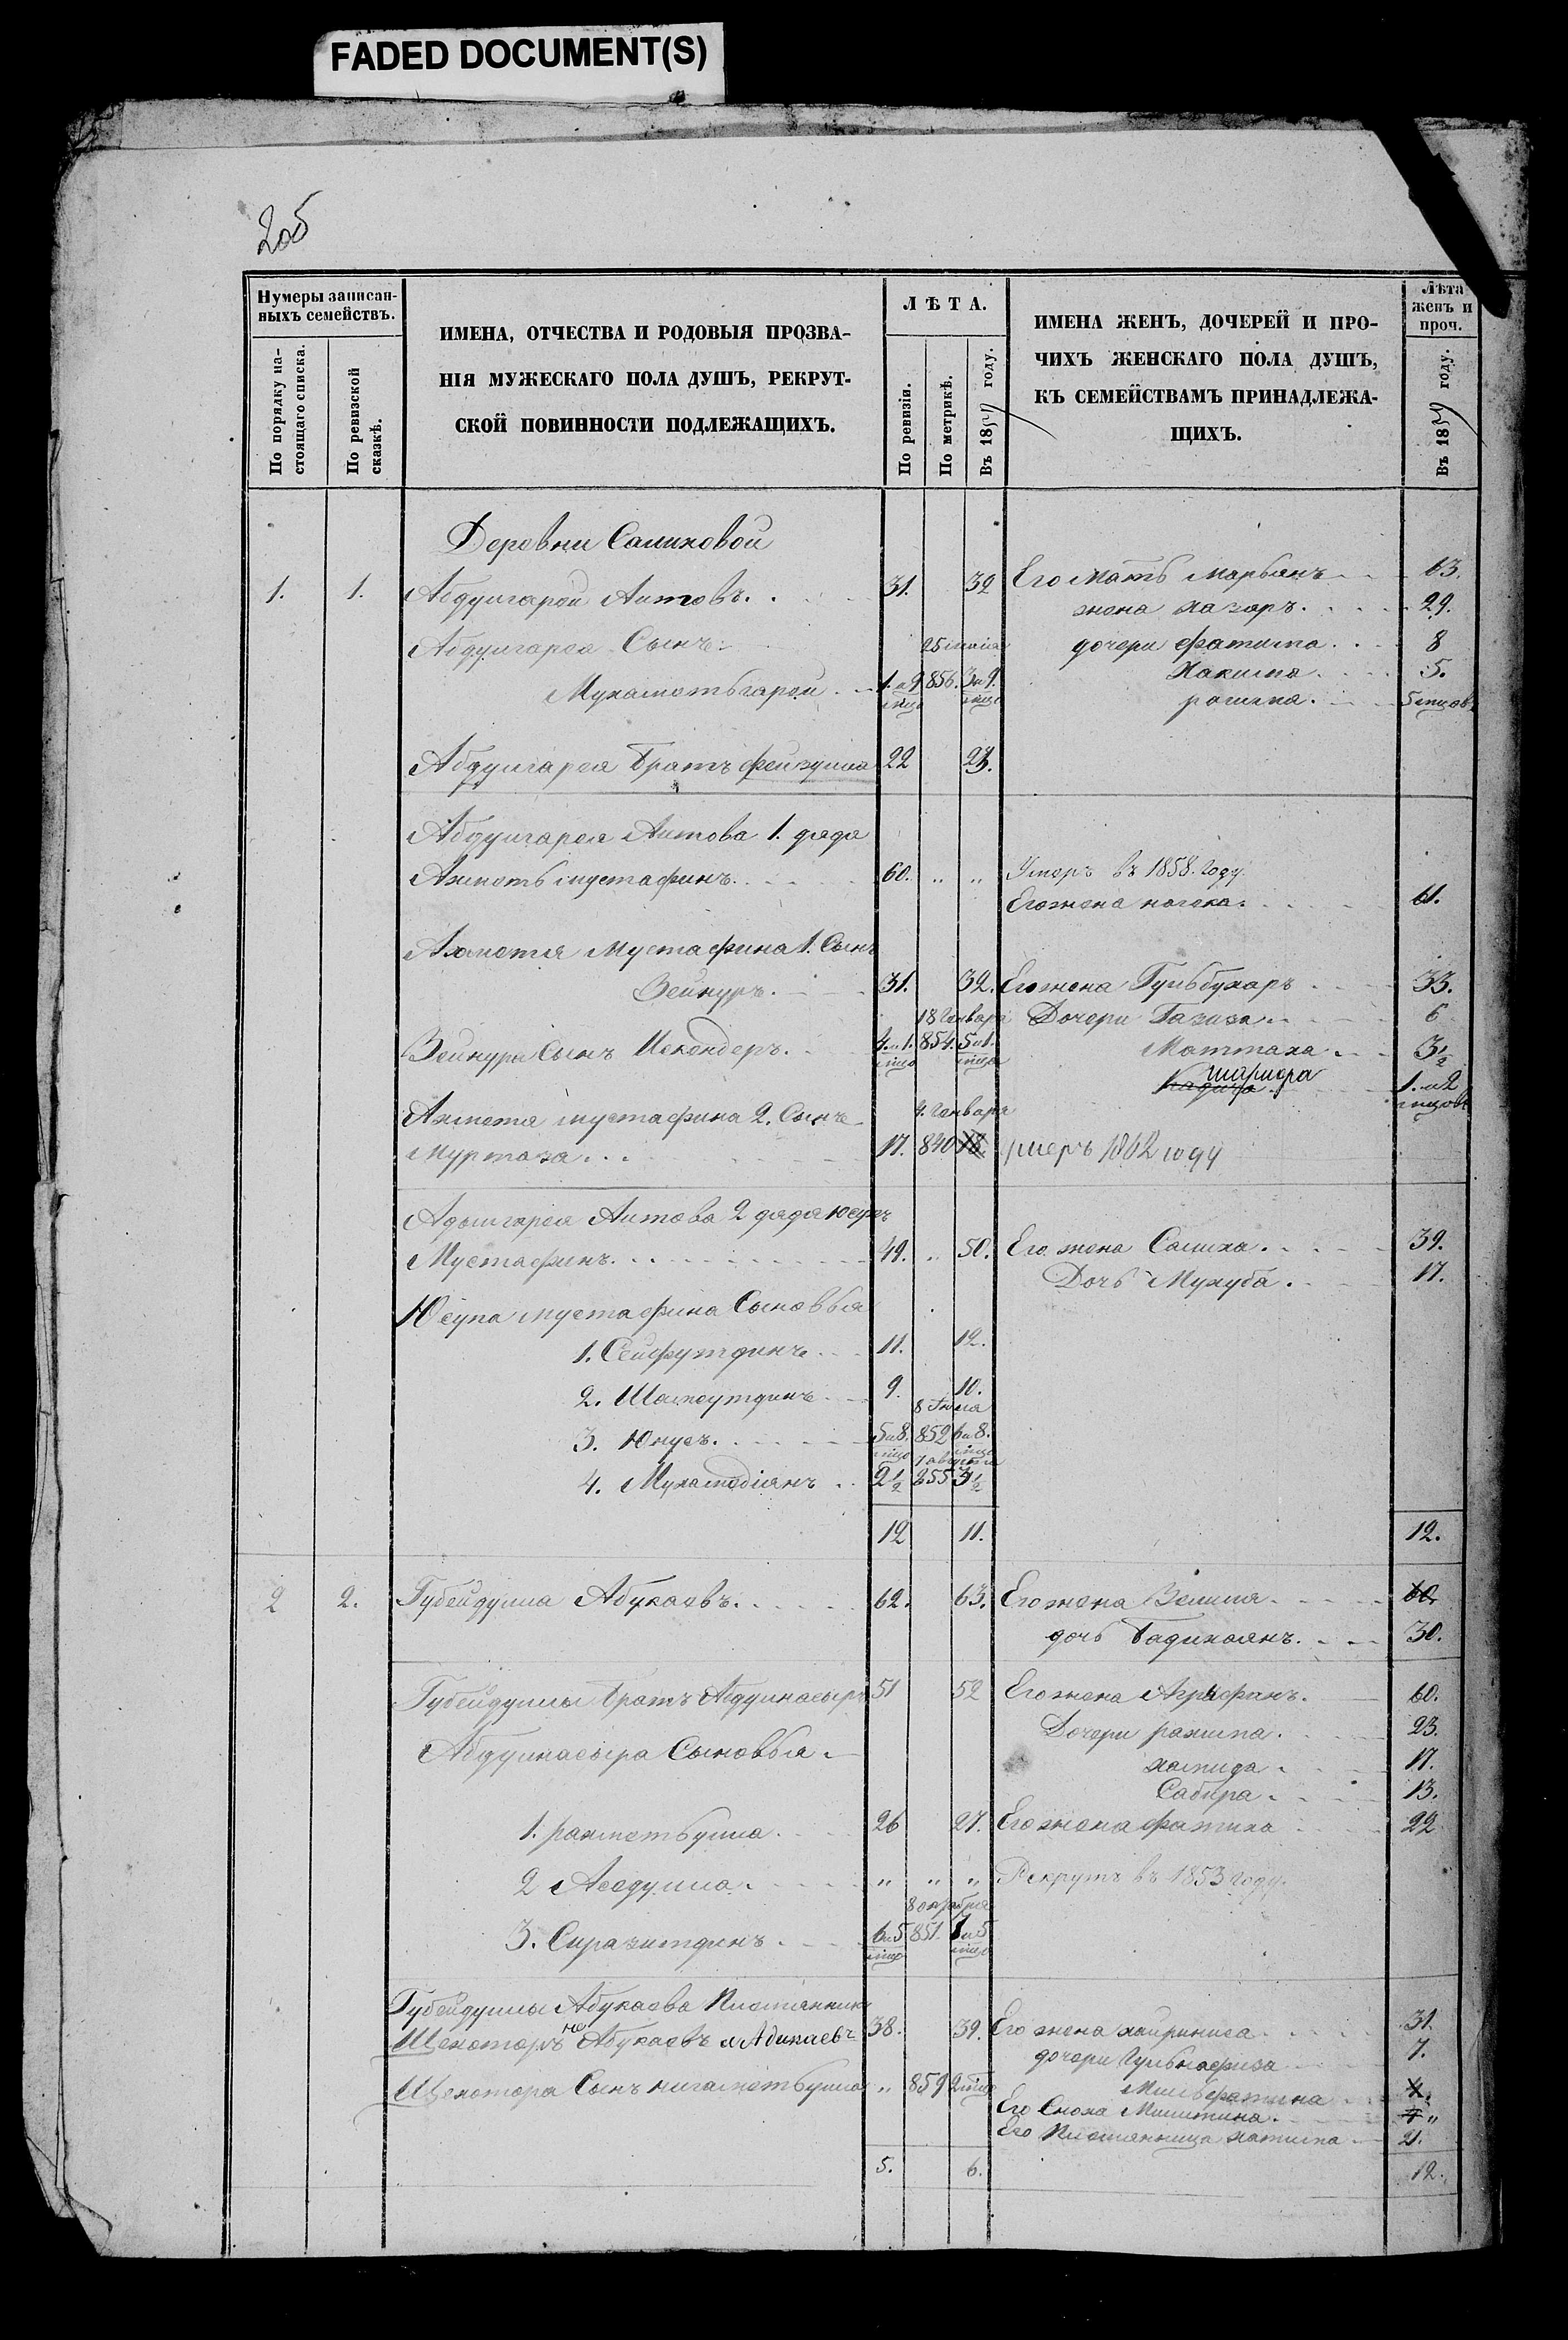 FADED DOCUMENT(S)
205
Нумеры записан-
ныхъ семействъ.
По порядку на-
стоящаго списка.
По ревизской
сказкѣ.
ИМЕНА, ОТЧЕСТВА И РОДОВЫЯ ПРОЗВА-
НІЯ МУЖЕСКАГО ПОЛА ДУШЪ, РЕКРУТ-
СКОЙ ПОВИННОСТИ ПОДЛЕЖАЩИХЪ.
ЛѢТА.
По ревизіи.
По метрикѣ.
Въ 18 году.
ИМЕНА ЖЕНЪ, ДОЧЕРЕЙ И ПРО-
ЧИХЪ ЖЕНСКАГО ПОЛА ДУШЪ,
КЪ СЕМЕЙСТВАМЪ ПРИНАДЛЕЖА-
ЩИХЪ.
Лѣта
женъ и
проч.
Въ 18 году.
Деревни Салиховой
1. 1. Абдулгарей Аитовъ. 31. 32 Его мать Марьянъ 63.
жена хазяръ. 29.
Абдулгарея Сынъ 25 дочери фатима. 8
Мухаметьгарей 1. и 9 856. 3 и 9. Хакима 5.
рагима. 5 мцов
Абдулгарея Братъ фейзулла 22 23.
Абдулгарея Аитова 1. дядя
Ахметь мустафинъ. 60. „ „ Умеръ въ 1858. году.
Его жена 61.
Ахметя Мустафина 1. Сынъ
Зейнуръ. 31. 32. Его жена Гульбухаръ 33.
18 Генваря Дочери Газиза 6
Зейнура Сынъ Искендеръ. 4 и 1. 854. 5 и 1. Маттаха 3 1/2
1. и 2
Ахметя мустафина 2. Сынъ 4. Генваря
Муртаза. 17. 840 18. умеръ 1862 году
Адылгарея Аитова 2 дядя Юсупъ
Мустафинъ. 49. „ 50. Его жена Салиха. 39.
Дочь Мухуба. 17.
Юсупа мустафина Сыновья
1. Сейфутдинъ 11. 12.
2. Шамсутдинъ 9. 10.
8 Июля
3. Юнусъ. 5 и 8. 852 6 и 8.
1 августа
4. Мухамедіянъ 2 1/2 855 3 1/2
12 11. 12.
2 2. Губейдулла Абукаевъ. 62. 63. Его жена Зелиля 60.
дочь Бадиханъ. 30.
Губейдуллы братъ Абдулнасыръ 51 52 Его жена 60.
Дочери рахима. 23.
Абдулнасыра Сыновья
хамида. 17.
Сабира. 13.
1. рахметьулла 26 27. Его жена фатиха 22
2 Асадулла. „ „ „ Рекрутъ въ 1853 году.
8 октября
3. Сиразитдинъ. 6 и 5 851. 7 и 5
Губейдуллы Абукаева Племянникъ
Шехетеръ не Абукаевъ а Абикаевъ 38. 39. Его жена хайриниса 31.
дочери Гульнафиза 7.
Шехетера Сынъ нигаметьулла „ 859 2 мцо 4.
Его Сноха „
Его Племянница халима 21.
5. 6. 12.